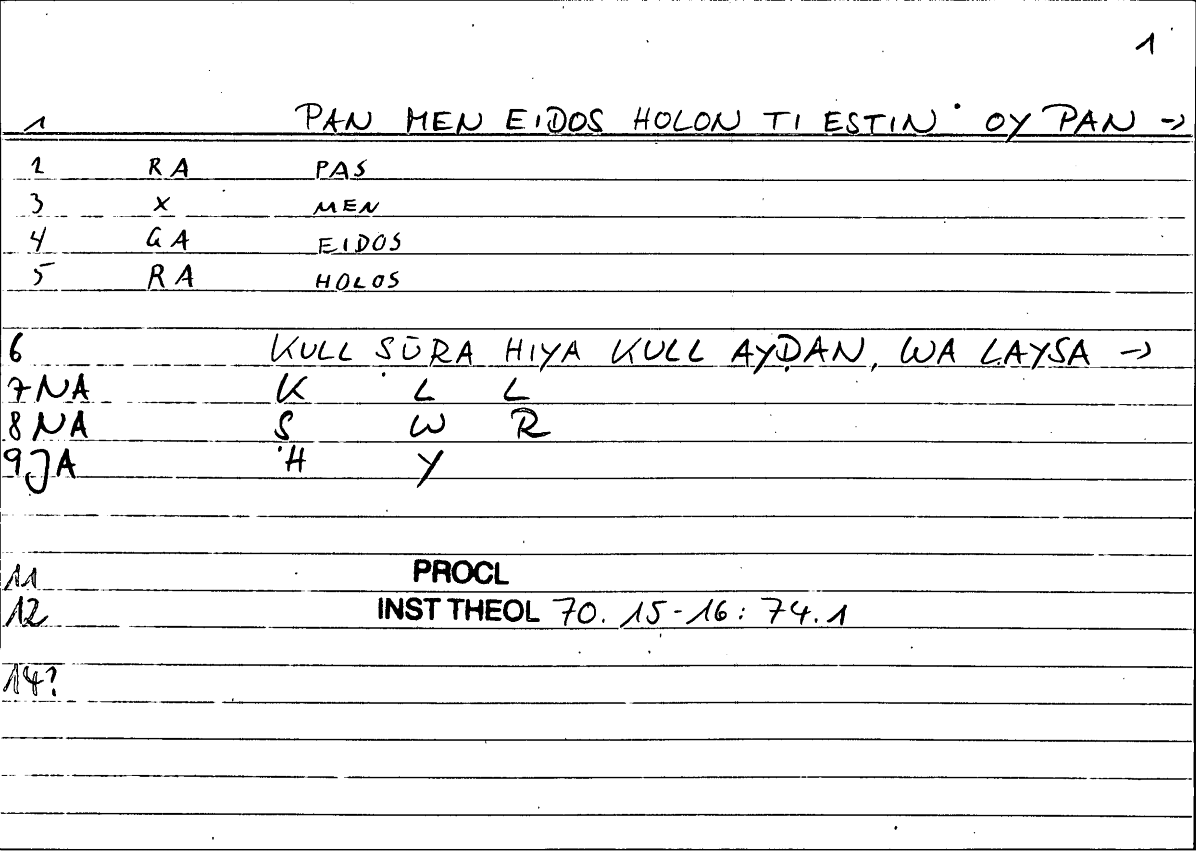 1
1 PAN MEN EIDOS HOLON TI ESTIN · OY PAN →
2 RA PAS
3 X MEN
4 GA EIDOS
5 RA HOLOS
6 KULL ṢŪRA HIYA KULL AYḌAN, WA LAYSA →
7 NA K L L
8 NA Ṣ W R
9 JA H Y
11 PROCL
12 INST THEOL 70. 15-16: 74.1
14?